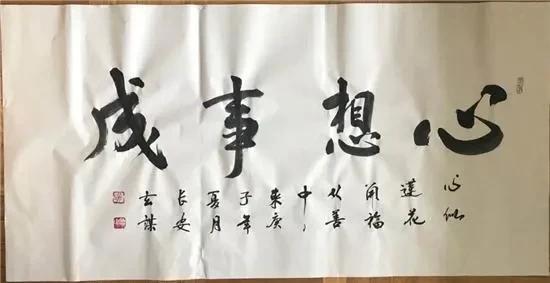 心想事成
心似
蓮花
開福
从善
中
来庚
子年
夏月
长安
玄